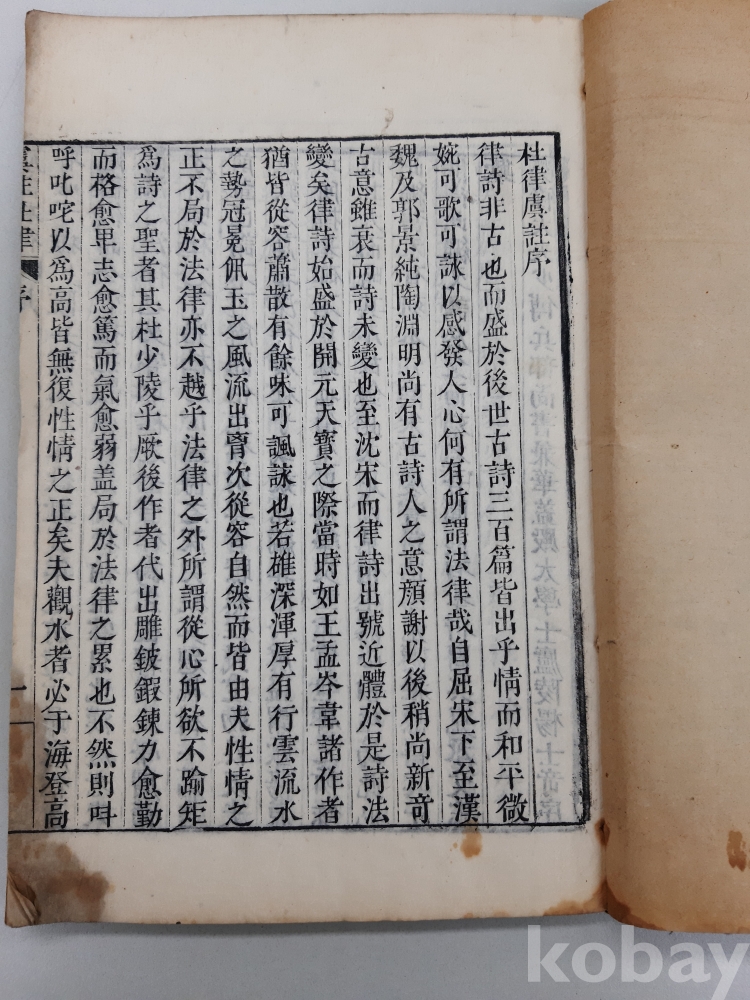 杜律虞註序
律詩非古也而盛於後世古詩三百篇皆出乎情而和平微
婉可歌可詠以感發人心何有所謂法律哉自屈宋下至漢
魏及郭景純陶淵明尚有古詩人之意顏謝以後稍尚新奇
古意雖衰而詩未變也至沈宋而律詩出號近體於是詩法
變矣律詩始盛於開元天寶之際當時如王孟岑韋諸作者
猶皆從容蕭散有餘味可諷詠也若雄深渾厚有行雲流水
之勢冠冕佩玉之風流出胷次從容自然而皆由夫性情之
正不局於法律亦不越乎法律之外所謂從心所欲不踰矩
為詩之聖者其杜少陵乎厥後作者代出雕鈹鍛鍊力愈勤
而格愈畀志愈篤而氣愈弱盖局於法律之累也不然則呌
呼叱咤以爲高皆無復性情之正矣夫觀水者必于海登高
虞註杜律 序 一
kobay